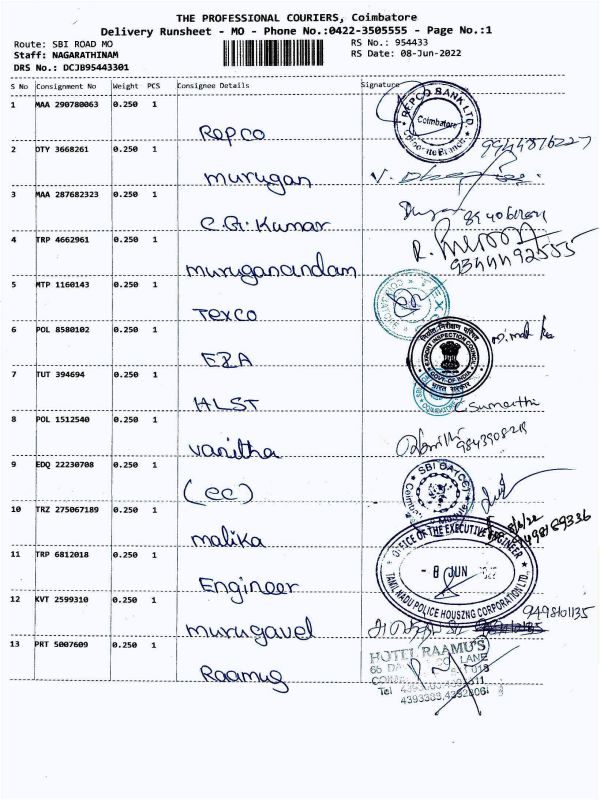 THE PROFESSIONAL COURIERS, Coimbatore
Delivery Runsheet - MO - Phone No.:0422-3505555 - Page No.:1
Route: SBI ROAD MO
RS No.: 954433
Staff: NAGARATHINAM
RS Date: 08-Jun-2022
DRS No.: DCJB95443301
S No Consignment No Weight PCS Consignee Details Signature
1 MAA 290780063 0.250 1
REPCO BANK LTD.
Coimbatore
Repco
2 DTY 3668261 0.250 1
9944876227
murugan
3 MAA 287682323 0.250 1
C.G. Kumar
4 TRP 4662961 0.250 1
9344492555
muruganandam
5 MTP 1160143 0.250 1
COIMBATORE
TEXCO
6 POL 8580102 0.250 1
निर्यात निरीक्षण परिषद
EXPORT INSPECTION COUNCIL
GOVT. OF INDIA
भारत सरकार
EIA
7 TUT 394694 0.250 1
SBI
COIMBATORE
C. Sumathi
HLST
8 POL 1512540 0.250 1
9843908218
vanitha
9 EDQ 22230708 0.250 1
SBI
(CC)
10 TRZ 275067189 0.250 1
8/6/22
9498169336
malika
11 TRP 6812018 0.250 1
OFFICE OF THE EXECUTIVE ENGINEER
- 8 JUN 2022
TAMIL NADU POLICE HOUSING CORPORATION LTD.,
Engineer
12 KVT 2599310 0.250 1
9498101135
murugavel
13 PRT 5007609 0.250 1
HOTEL RAAMU'S
LANE
018
Tel
4393383,4392806
Raamus